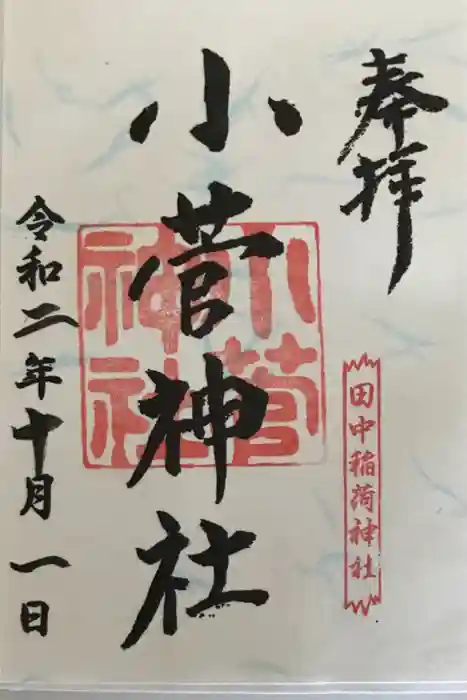 奉拝
田中稲荷神社
小菅神社
小菅神社
令和二年十月一日